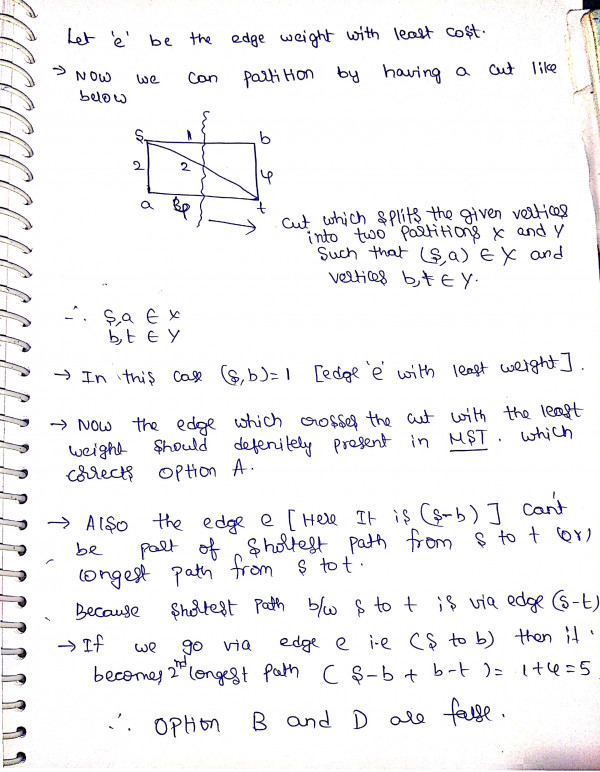 Let 'e' be the edge weight with least cost.
→ Now we can partition by having a cut like
below
S 1 b
2 2 4
a t
cut which splits the given vertices
into two partitions X and Y
Such that (S,a) ∈ X and
vertices b,t ∈ Y.
∴ S,a ∈ X
b,t ∈ Y
→ In this case (S,b)=1 [edge 'e' with least weight].
→ Now the edge which crosses the cut with the least
weight should defenitely present in MST. which
corrects option A.
→ Also the edge e [Here It is (S-b)] can't
be part of shortest path from S to t (or)
longest path from S to t.
Because shortest path b/w S to t is via edge (S-t)
→ If we go via edge e i.e (S to b) then it
becomes 2nd longest path (S-b + b-t) = 1+4=5
∴ option B and D are false.